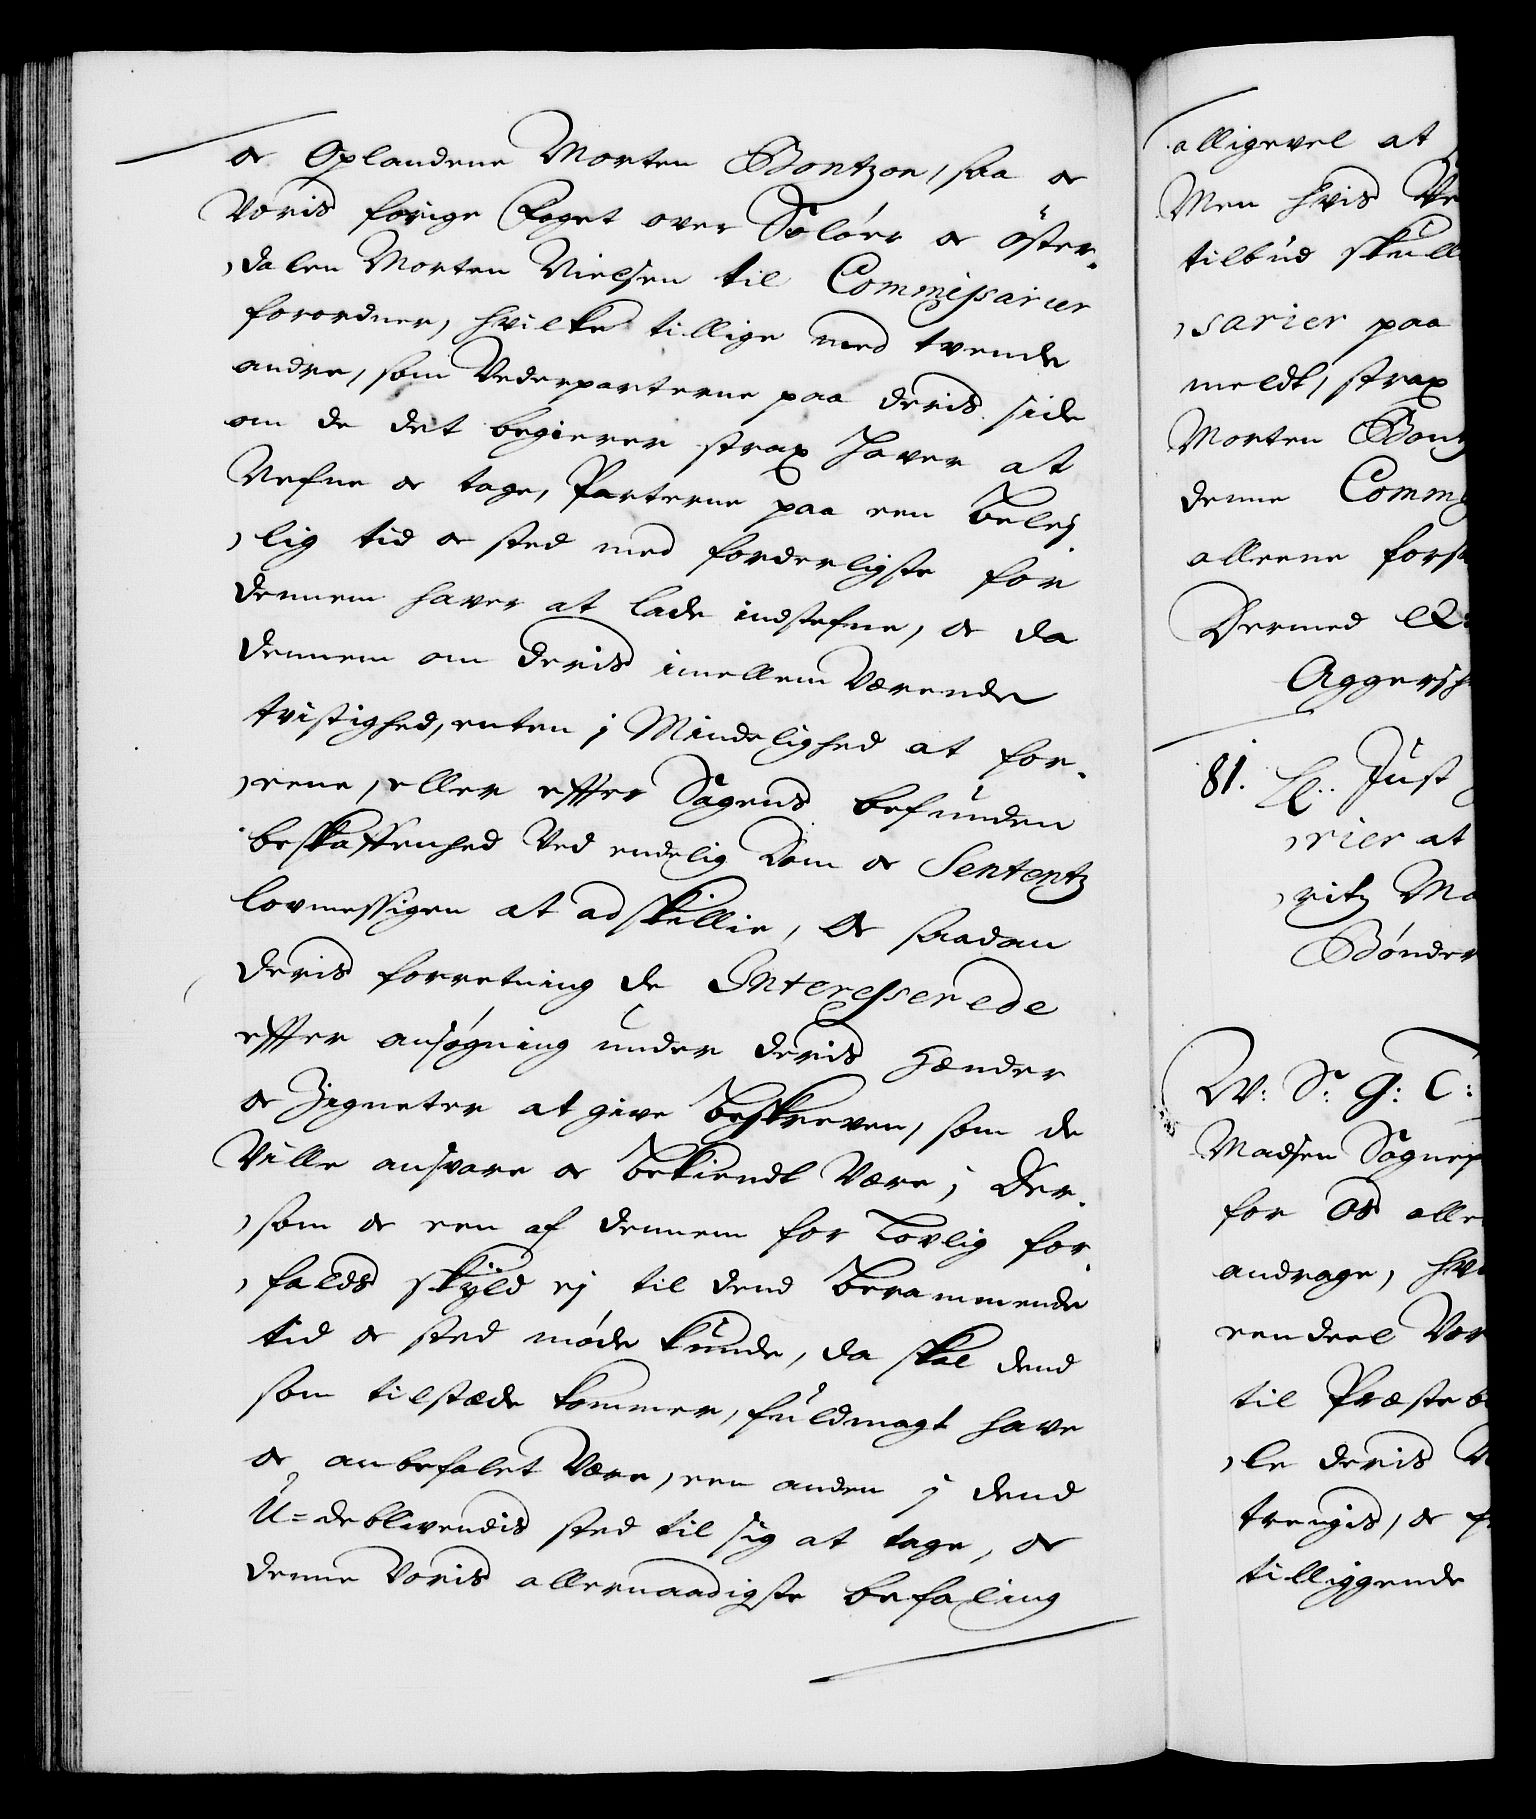 oc Oplandene Morten Bontzon, saa oc
Voris forige Foget over Soløer oc Öster-
dalen Morten Nielsen til Commissarier
forordner, hvilke tillige med tvende
andre, som Vederparterne paa deris side
om de det begierer strax haver at
Nefne oc tage, Parterne paa een belej
lig tid oc sted med forderligste for
dennem haver at lade indstefne, oc da
dennem om deris imellem Værende
tvistighed, enten j Mindelighed at for-
eene, eller effter Sagens befunden
beskaffenhed Ved endelig Dom oc Sententz
lovmessigen at adskillie, Oc saadan
deris forretning de Interesserede
effter ansøgning under deris Hænder
oc Zigneter at give beskreven, som de
Ville ansvare oc bekiendt Være; Der-
som oc een af dennem for Lovlig for
falds skÿld ej til dend berammende
tid oc sted møde kunde, da skal dend
som tilstæde kommer, fuldmagt have
oc anbefalet Være, een anden j dend
U=deblivendis sted til sig at tage, oc
denne Voris allernaadigste befaling
alligevel at
Men hvis
tilbud skull
sarier paa
meldt, strax
Morten Bont
denne Comm
alleene fors
Dermed
Aggersh
81. Just
rier at
ritz
Bønder
W: S: G: T:
Madsen Sognep
for Os alle
andrage, hv
eendeel Vor
til Præsteb
le deris
trengis, oc
tilliggende